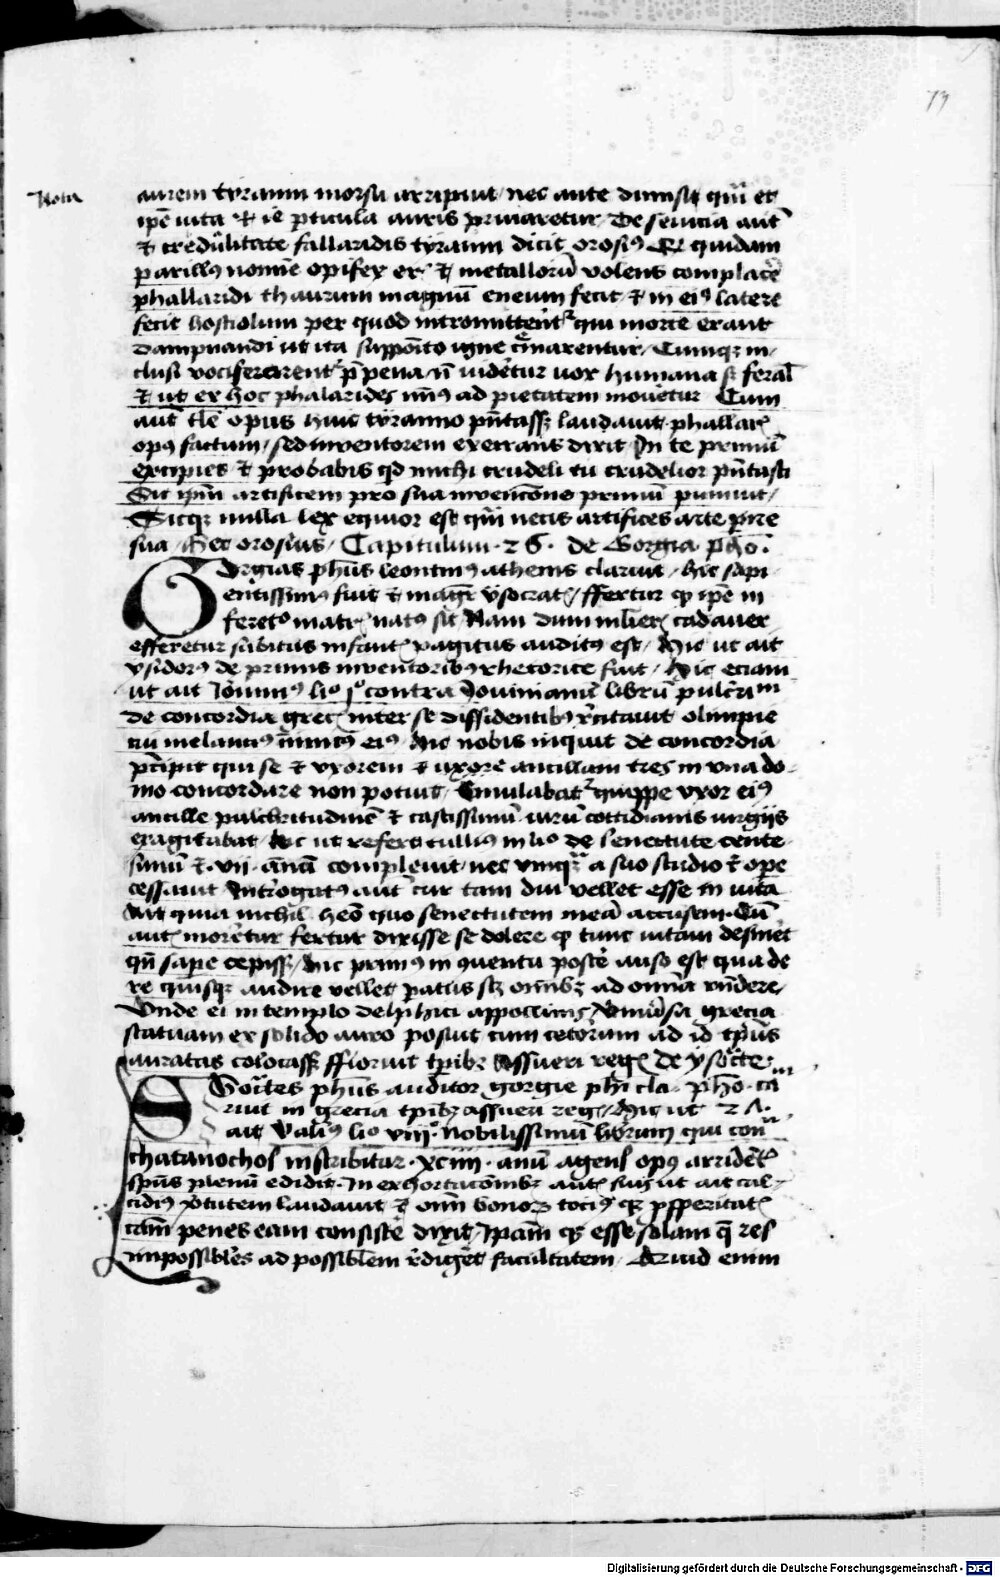 73
Nota
aurem tyranni morsu arripuit / nec ante dimisit qm̄ et
ip̄e vita et ie p̱ticula auris priuaretur / De seuicia aut̄
et credulitate fallaridis tyranni dicit orosiꝰ Qꝫ quidam
parillꝰ nomīe opifex erꝯ et metallorū volens complacē
phallaridi thaurum magnū eneum fecit / et in eiꝰ latere
fecit hostiolum per quod intromitterent̉ qui morte erant
dampnandi ut ita supposito igne c̄marentur / Cumqꝫ in
clusi vociferarent̉ p̄ pena n̄ videretur vox humana sꝫ feral̉
et ut ex hoc phalarides minꝰ ad pietatem mouetur Cum
aut̄ tl̄e opus huic tyranno p̄ntassꝫ laudauit phallarꝯ
opꝰ factum / sed inuentorem execrans dixit / In te primū
excipies et probabis qd michi crudeli tu crudelior p̄ntasti
Sic ip̄m artificem pro sua inuencōne primū puniuit /
Sicqꝫ nulla lex equior est qm̄ necis artifices arte p̱ire
sua / Hec orosius / Capitulum · 26 · de Gorgia p̄ho ·
Orgias ph̄us leontinꝰ athenis clariuit / hic sapi
entissimꝰ fuit et magr̄ ysocratꝯ / ffertur qꝫ ip̄e in
feretº matrꝯ natꝰ sit / Nam dum mulierꝯ cadauer
efferretur subitus infantꝯ vagitus auditꝰ est / Hic ut ait
ysidorꝰ de primis inuentoribꝰ rhetorice fuit / Hic eciam
ut ait Ieronimꝰ liº pº contra Iouinianū librū pulcrum
de concordia grecꝯ inter se dissidentibꝰ recitauit olimpie
cui melanciꝰ inimicꝰ eiꝰ / Hic nobis inquit de concordia
p̄cipit qui se et vxorem et vxore ancillam tres in vna do
mo concordare non potuit / Emulabat̉ quippe vxor eiꝰ
ancille pulchritudinē et castissimū virū cottidianis iurgiis
exagitabat / Hic ut refert tullius in liº de senectute cente
simū et · vii · annū compleuit / nec vnqꝫ a suo studio et opere
cessauit Interrogatꝰ aut̄ cur tam diu vellet esse in vita
Ait quia nichil habeo quo senectutem meā accusem · Cū
autꝯ moretur fertur dixisse se dolere qꝫ tunc vitam desineret
qn̄ sapere cepissꝫ / Hic primꝰ in 9uentu poscere auso est qua de
re quisqꝫ audire vellet paratus sꝫ omībꝫ ad omnia rn̄dere /
Vnde ei in templo delphici appollinis / Vniuersa grecia
statuam ex solido auro posuit cum ceterorum ad id tp̄us
auratas colocassꝫ ffloruit tp̄ibꝫ Assueri regꝯ De ysocrate
Socrates ph̄us auditor gorgie phi cla · p̄ho · ca
riuit in grecia tp̄ibꝫ assueri regꝯ / Hic ut · 27 ·
ait Valeriꝰ liº viiiº nobilissimū librum qui con
chatanochos inscribitur · xciiii · annū agens opꝰ arridētꝯ
sp̄us plenū edidit · In exhortacōnibꝫ autꝯ suis ut ait cal
cidiꝰ v̄tutem laudauit et om̄ bonorꝫ tociꝰ qꝫ p̱speritatꝯ
cām penes eam consistere dixit / Ip̄am qꝫ esse solam q̄ res
impossibiles ad possibilem redigeret facultatem / Quid enim
Digitalisierung gefördert durch die Deutsche Forschungsgemeinschaft - DFG